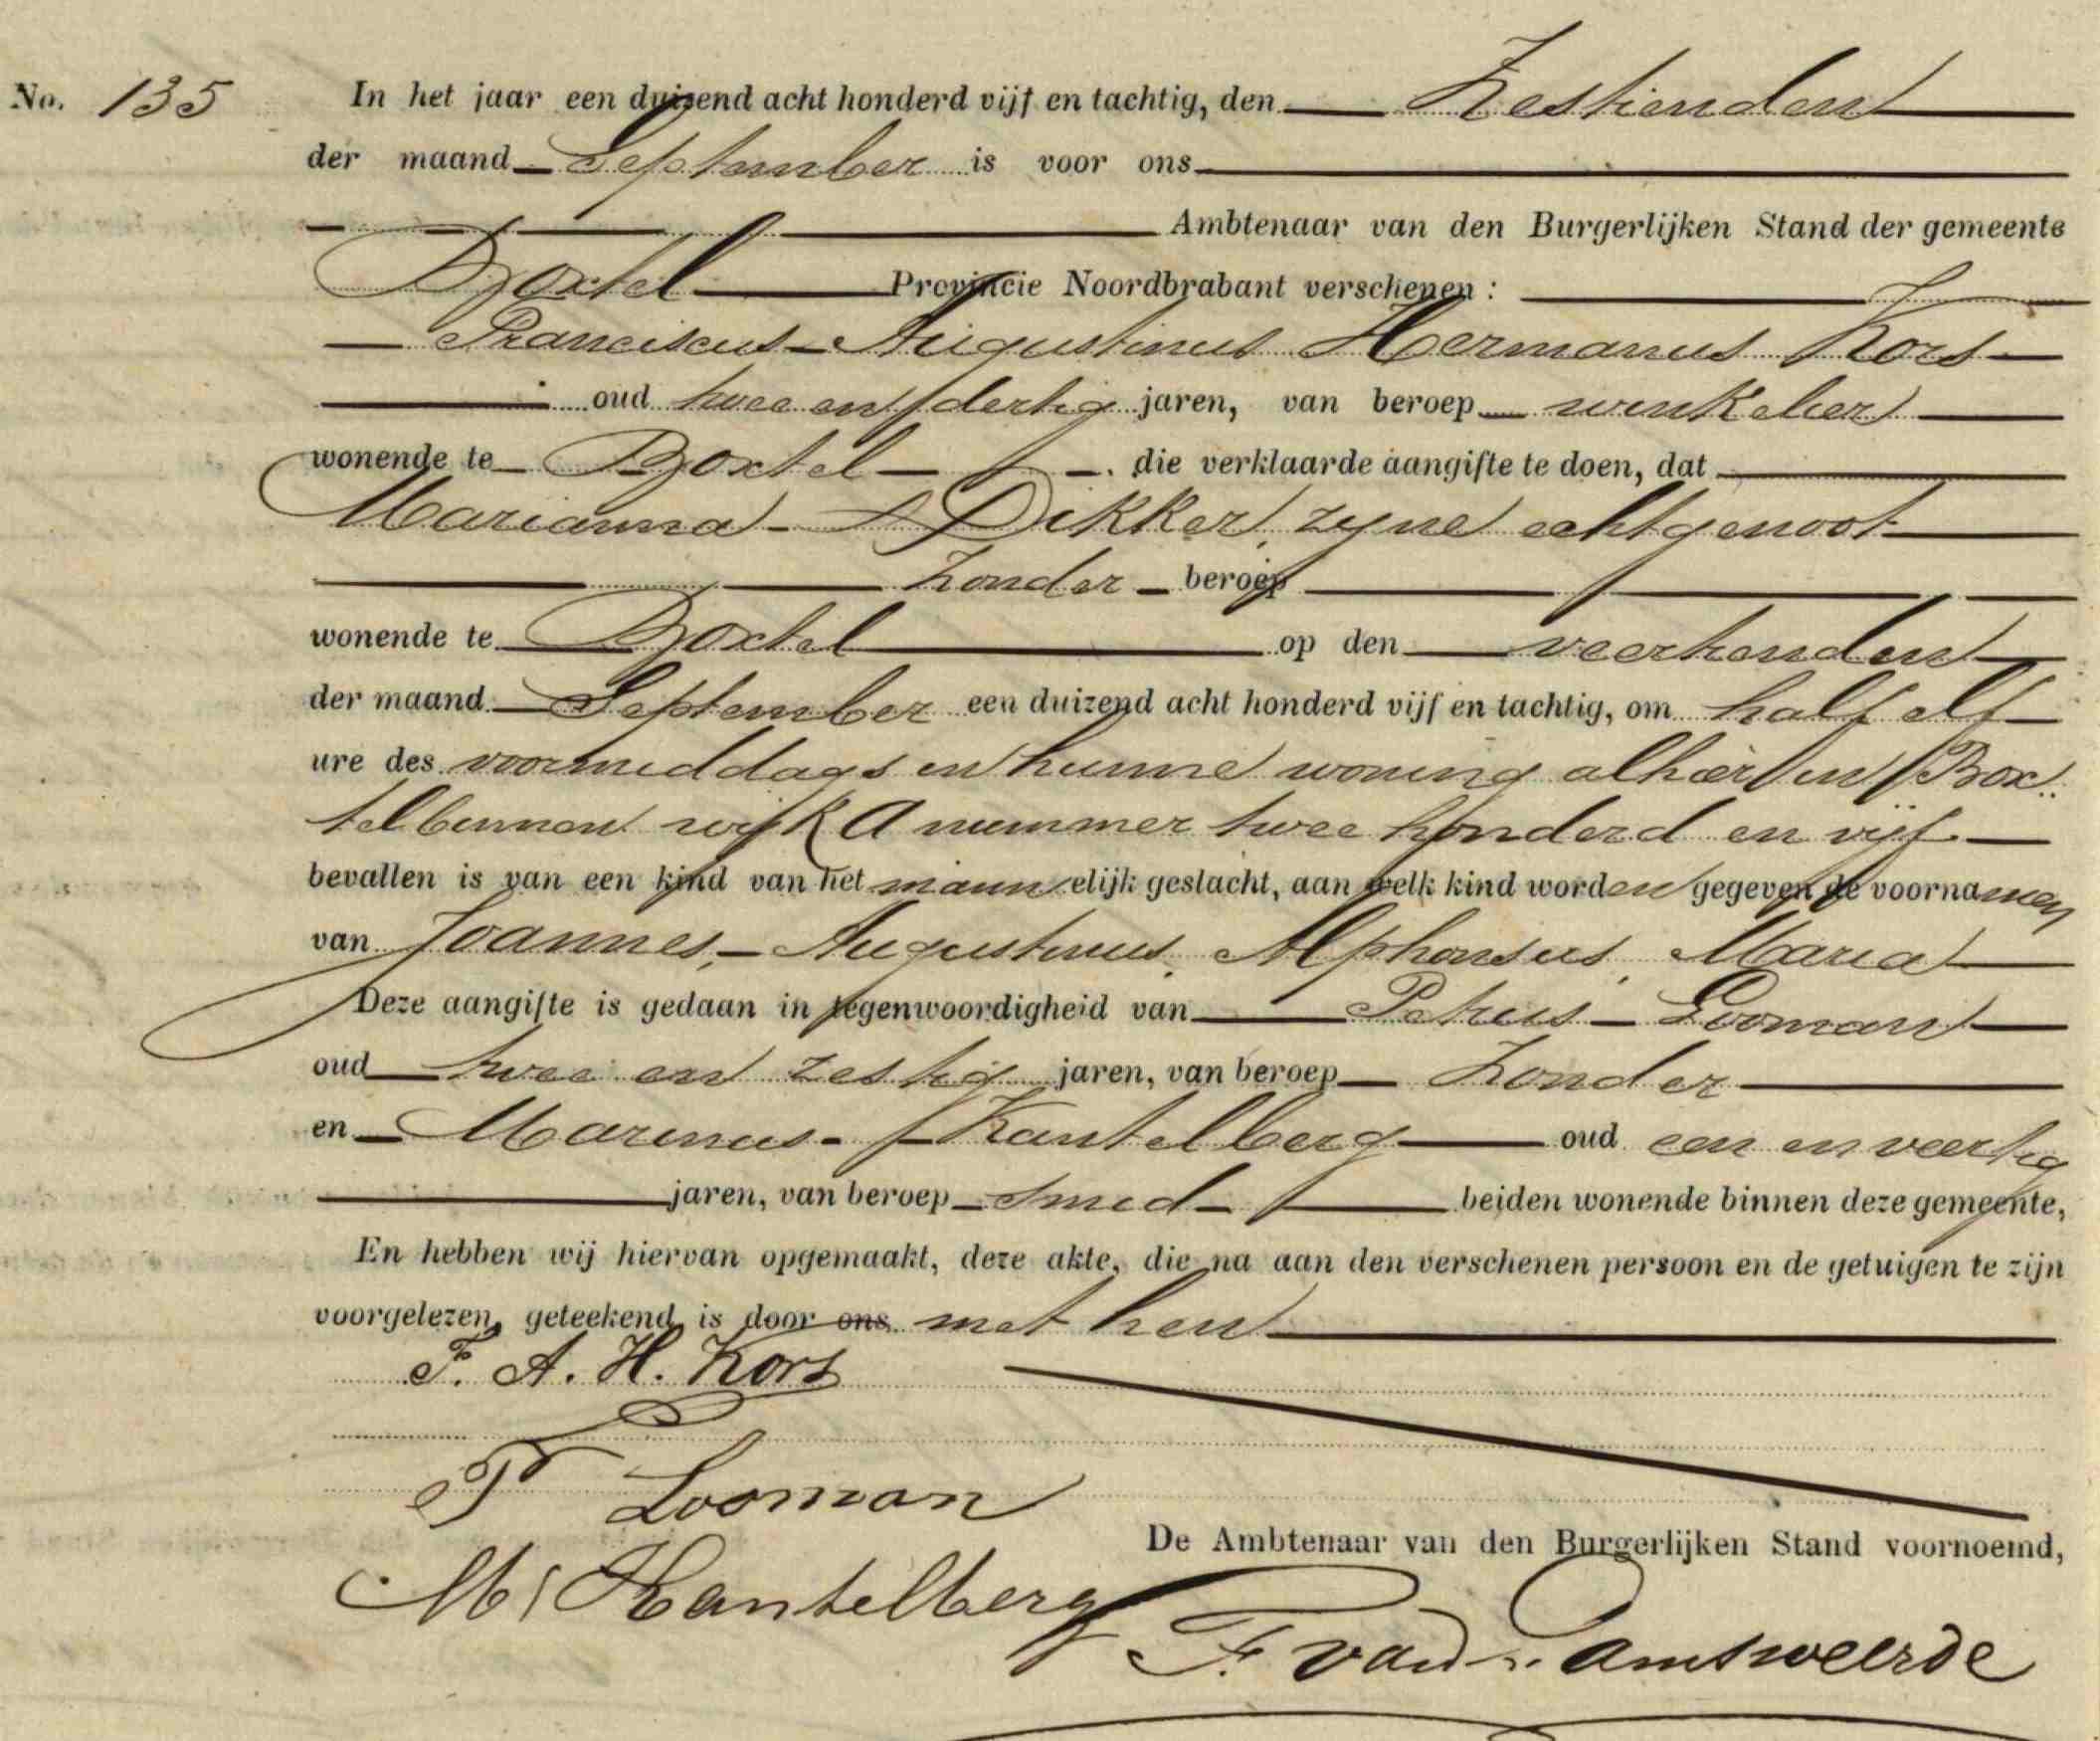 No. 135 In het jaar een duizend acht honderd vijf en tachtig, den Zestienden
der maand September is voor ons
Ambtenaar van den Burgerlijken Stand der gemeente
Boxtel Provincie Noordbrabant verschenen :
Franciscus Augustinus Hermanus Kors
oud twee en dertig jaren, van beroep winkelier
wonende te Boxtel die verklaarde aangifte te doen, dat
Marianna Dikker, zyne echtgenoot
Zonder beroep
wonende te Boxtel op den veertienden
der maand September een duizend acht honderd vijf en tachtig, om half elf
ure des voormiddags in hunne woning alhier in Box„
telbinnen wijk A nummer twee honderd en vijf
bevallen is van een kind van het mannelijk geslacht, aan welk kind worden gegeven de voornamen
van Joannes, Augustinus, Alphonsus, Maria
Deze aangifte is gedaan in tegenwoordigheid van Petrus Looman
oud twee en zestig jaren, van beroep Zonder
en Marinus Kantelberg oud een en veertig
jaren, van beroep smid beiden wonende binnen deze gemeente,
En hebben wij hiervan opgemaakt, deze akte, die na aan den verschenen persoon en de getuigen te zijn
voorgelezen, geteekend is door ons met hen
F. A. H. Kors
P Looman
De Ambtenaar van den Burgerlijken Stand voornoemd,
M. Kantelberg
F. van Lamsweerde